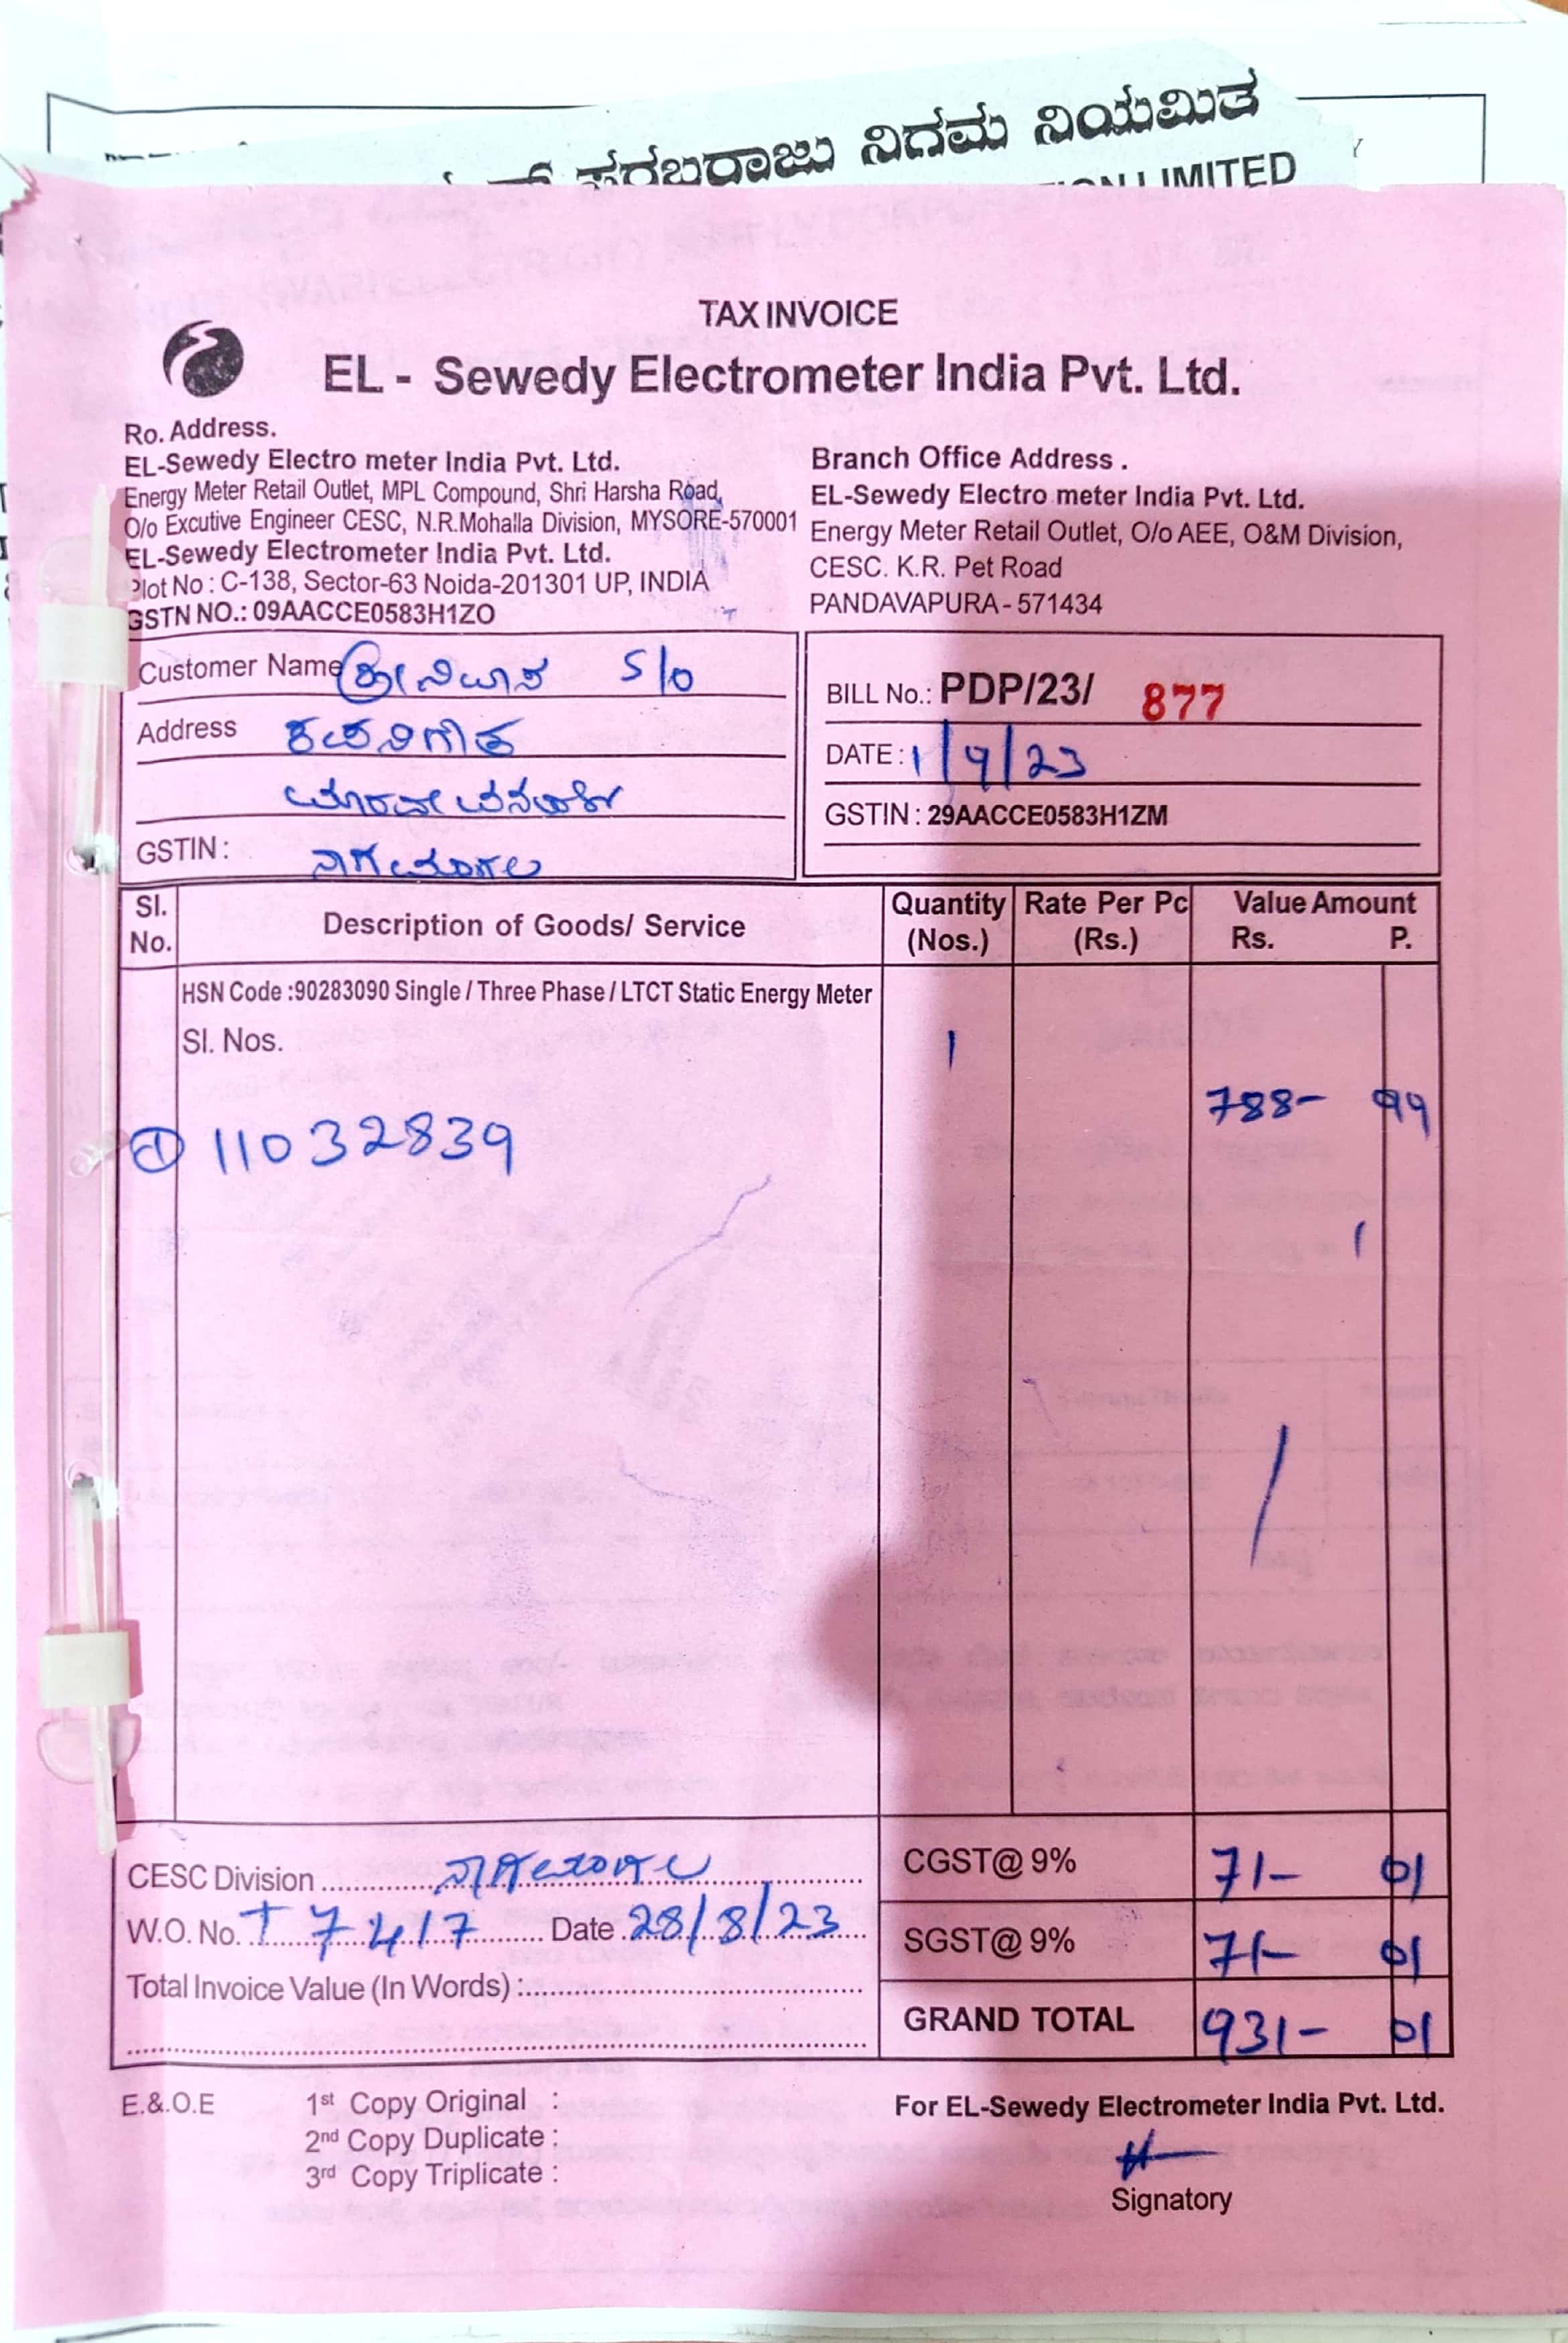 ಸರಬರಾಜು ನಿಗಮ ನಿಯಮಿತ
LIMITED
TAX INVOICE
EL - Sewedy Electrometer India Pvt. Ltd.
Ro. Address.
EL-Sewedy Electro meter India Pvt. Ltd.
Energy Meter Retail Outlet, MPL Compound, Shri Harsha Road,
O/o Excutive Engineer CESC, N.R.Mohalla Division, MYSORE-570001
EL-Sewedy Electrometer India Pvt. Ltd.
Plot No : C-138, Sector-63 Noida-201301 UP, INDIA
GSTN NO.: 09AACCE0583H1ZO
Branch Office Address .
EL-Sewedy Electro meter India Pvt. Ltd.
Energy Meter Retail Outlet, O/o AEE, O&M Division,
CESC. K.R. Pet Road
PANDAVAPURA - 571434
Customer Name ಶ್ರೀನಿವಾಸ S/o
Address
GSTIN : ನಾಗಮಂಗಲ
BILL No.: PDP/23/ 877
DATE : 1/9/23
GSTIN : 29AACCE0583H1ZM
Sl. No. Description of Goods/ Service Quantity (Nos.) Rate Per Pc (Rs.) Value Amount Rs. P.
HSN Code :90283090 Single / Three Phase / LTCT Static Energy Meter
Sl. Nos. 1
788- 99
① 11032839
CESC Division ನಾಗಮಂಗಲ
CGST@ 9% 71- 01
W.O. No. T 7417 Date 28/8/23
SGST@ 9% 71- 01
Total Invoice Value (In Words) :
GRAND TOTAL 931- 01
E.&.O.E 1st Copy Original :
2nd Copy Duplicate :
3rd Copy Triplicate :
For EL-Sewedy Electrometer India Pvt. Ltd.
Signatory